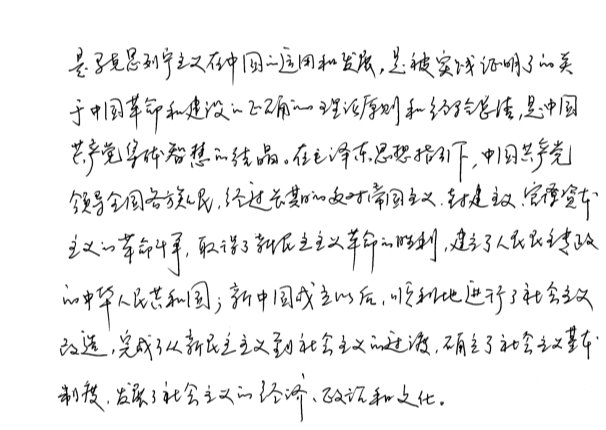 是马克思列宁主义在中国的运用和发展，是被实践证明了的关
于中国革命和建设的正确的理论原则和经验总结，是中国
共产党集体智慧的结晶。在毛泽东思想指引下，中国共产党
领导全国各族人民，经过长期的反对帝国主义、封建主义、官僚资本
主义的革命斗争，取得了新民主主义革命的胜利，建立了人民民主专政
的中华人民共和国；新中国成立以后，顺利地进行了社会主义
改造，完成了从新民主主义到社会主义的过渡，确立了社会主义基本
制度，发展了社会主义的经济、政治和文化。